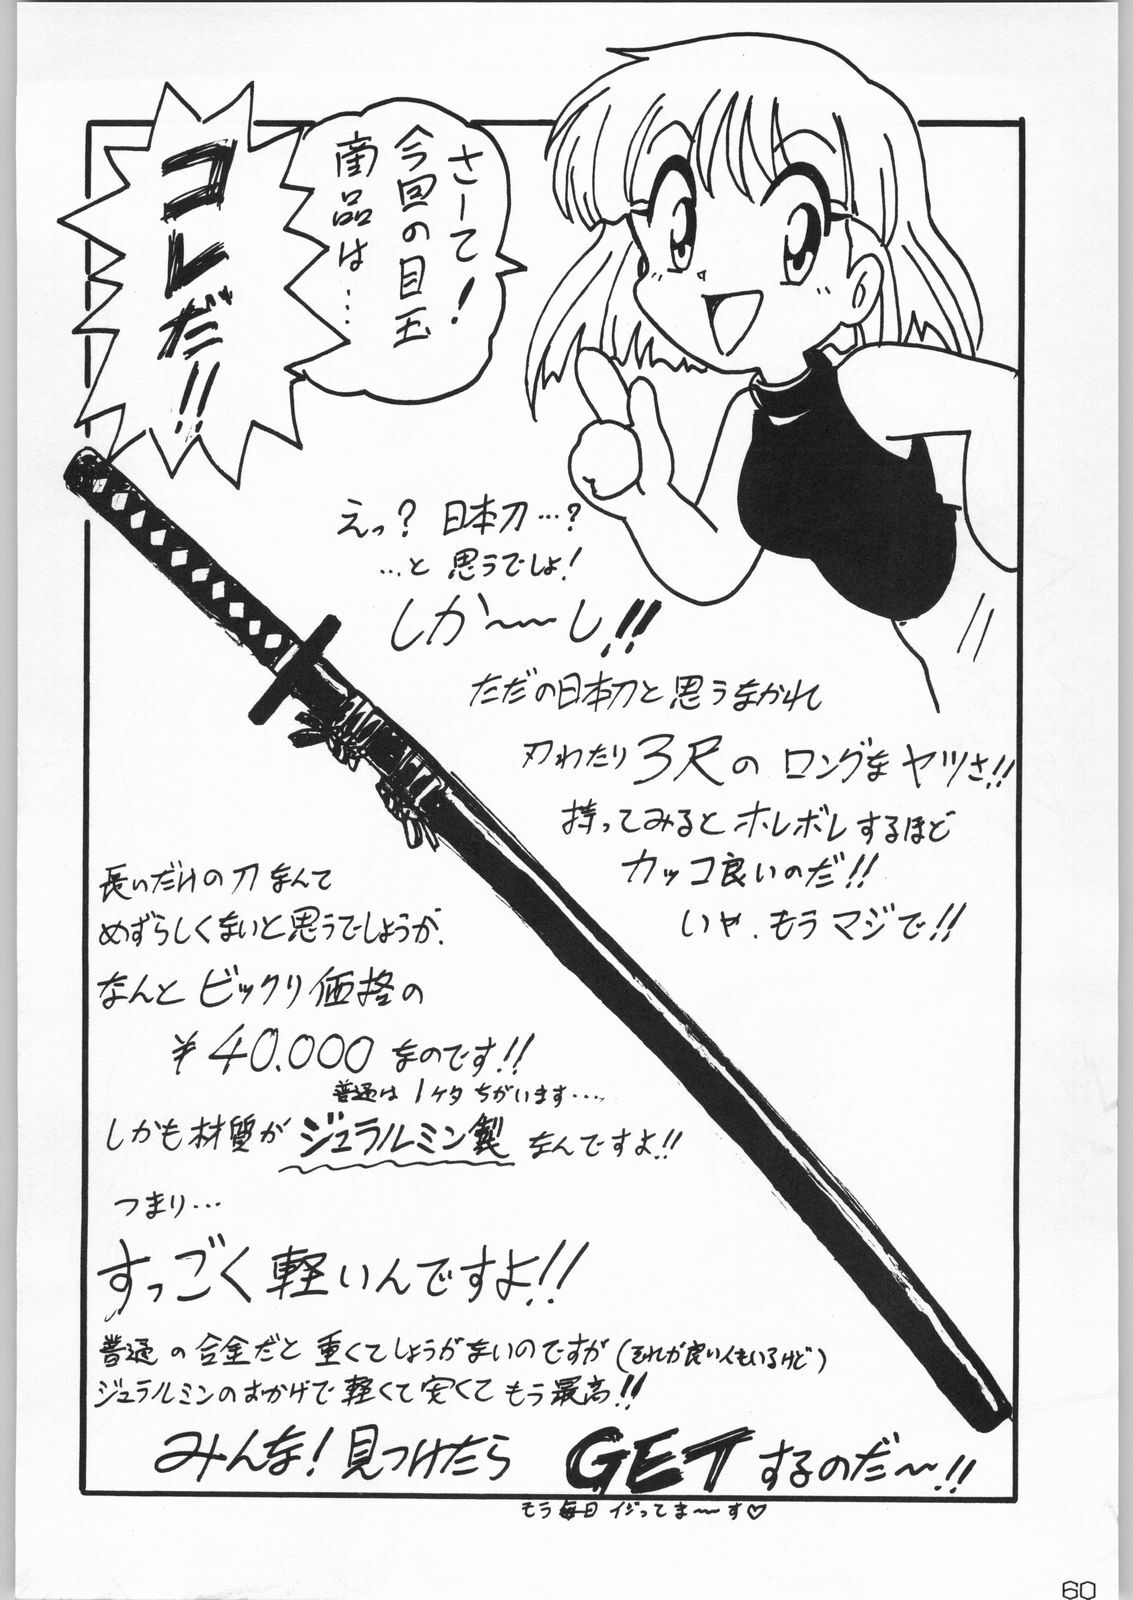 さーて!
今回の目玉
商品は…
コレだ!!
えっ? 日本刀…?
…と 思うでしょ!
しか〜〜し!!
ただの日本刀と思うなかれ
刃わたり 3尺の ロングな ヤツさ!!
持ってみると ホレボレするほど
カッコ良いのだ!!
いや、もう マジで!!
長いだけの刀なんて
めずらしくないと思うでしょうが、
なんと ビックリ価格の
¥40.000 なのです!!
普通は 1ケタ ちがいます….
しかも材質が ジュラルミン製 なんですよ!!
つまり…
すっごく軽いんですよ!!
普通の合金だと 重くてしょうがないのですが (それが良い人もいるけど)
ジュラルミンのおかげで 軽くて安くて もう最高!!
みんな! 見つけたら GETするのだ〜!!
もう毎日 イジってま〜〜す♡
60